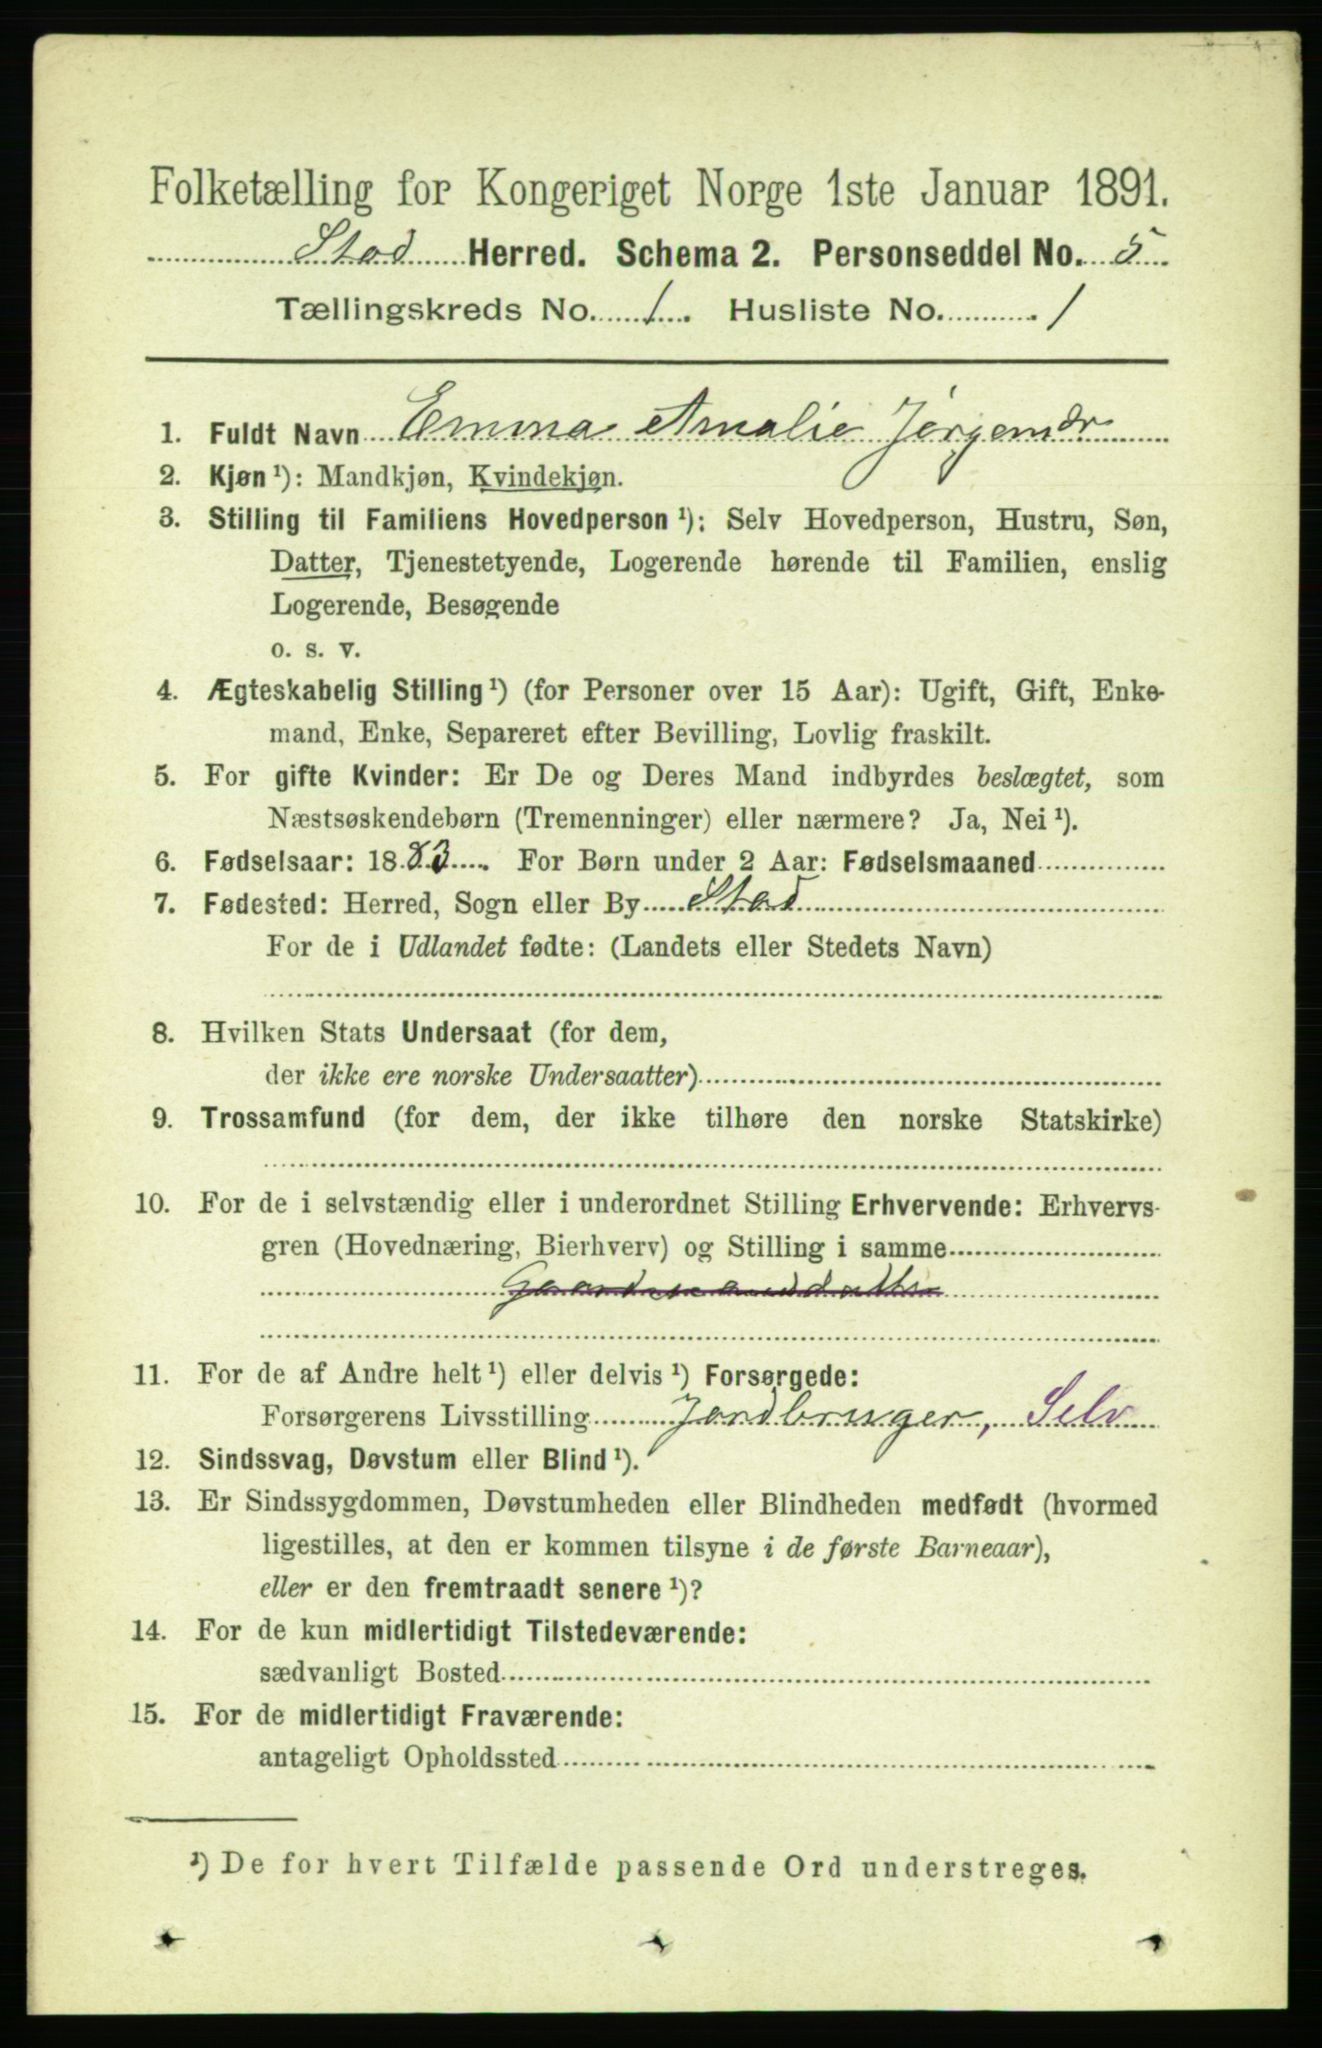 Folketælling for Kongeriget Norge 1ste Januar 1891.
Stod Herred. Schema 2. Personseddel No. 5
Tællingskreds No. 1. Husliste No. 1
1. Fuldt Navn Emma Amalie Jörgensdr
2. Kjøn ¹): Mandkjøn, Kvindekjøn.
3. Stilling til Familiens Hovedperson ¹): Selv Hovedperson, Hustru, Søn,
Datter, Tjenestetyende, Logerende hørende til Familien, enslig
Logerende, Besøgende
o. s. v.
4. Ægteskabelig Stilling ¹) (for Personer over 15 Aar): Ugift, Gift, Enke-
mand, Enke, Separeret efter Bevilling, Lovlig fraskilt.
5. For gifte Kvinder: Er De og Deres Mand indbyrdes beslægtet, som
Næstsøskendebørn (Tremenninger) eller nærmere? Ja, Nei ¹).
6. Fødselsaar: 1883. For Børn under 2 Aar: Fødselsmaaned
7. Fødested: Herred, Sogn eller By Stod
For de i Udlandet fødte: (Landets eller Stedets Navn)
8. Hvilken Stats Undersaat (for dem,
der ikke ere norske Undersaatter)
9. Trossamfund (for dem, der ikke tilhøre den norske Statskirke)
10. For de i selvstændig eller i underordnet Stilling Erhvervende: Erhvervs-
gren (Hovednæring, Bierhverv) og Stilling i samme
Gaardmanddatter
11. For de af Andre helt ¹) eller delvis ¹) Forsørgede:
Forsørgerens Livsstilling Jordbruger, Selv
12. Sindssvag, Døvstum eller Blind ¹).
13. Er Sindssygdommen, Døvstumheden eller Blindheden medfødt (hvormed
ligestilles, at den er kommen tilsyne i de første Barneaar),
eller er den fremtraadt senere ¹)?
14. For de kun midlertidigt Tilstedeværende:
sædvanligt Bosted
15. For de midlertidigt Fraværende:
antageligt Opholdssted
¹) De for hvert Tilfælde passende Ord understreges.